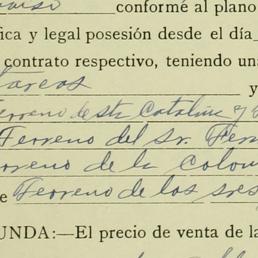 conformé al plano
ica y legal posesión desde el día
contrato respectivo, teniendo una
tareas
y
erreno de sta Catalina y
Terreno del sr. Fer
rreno de la colon
e Terreno de los sres
UNDA:—El precio de venta de la